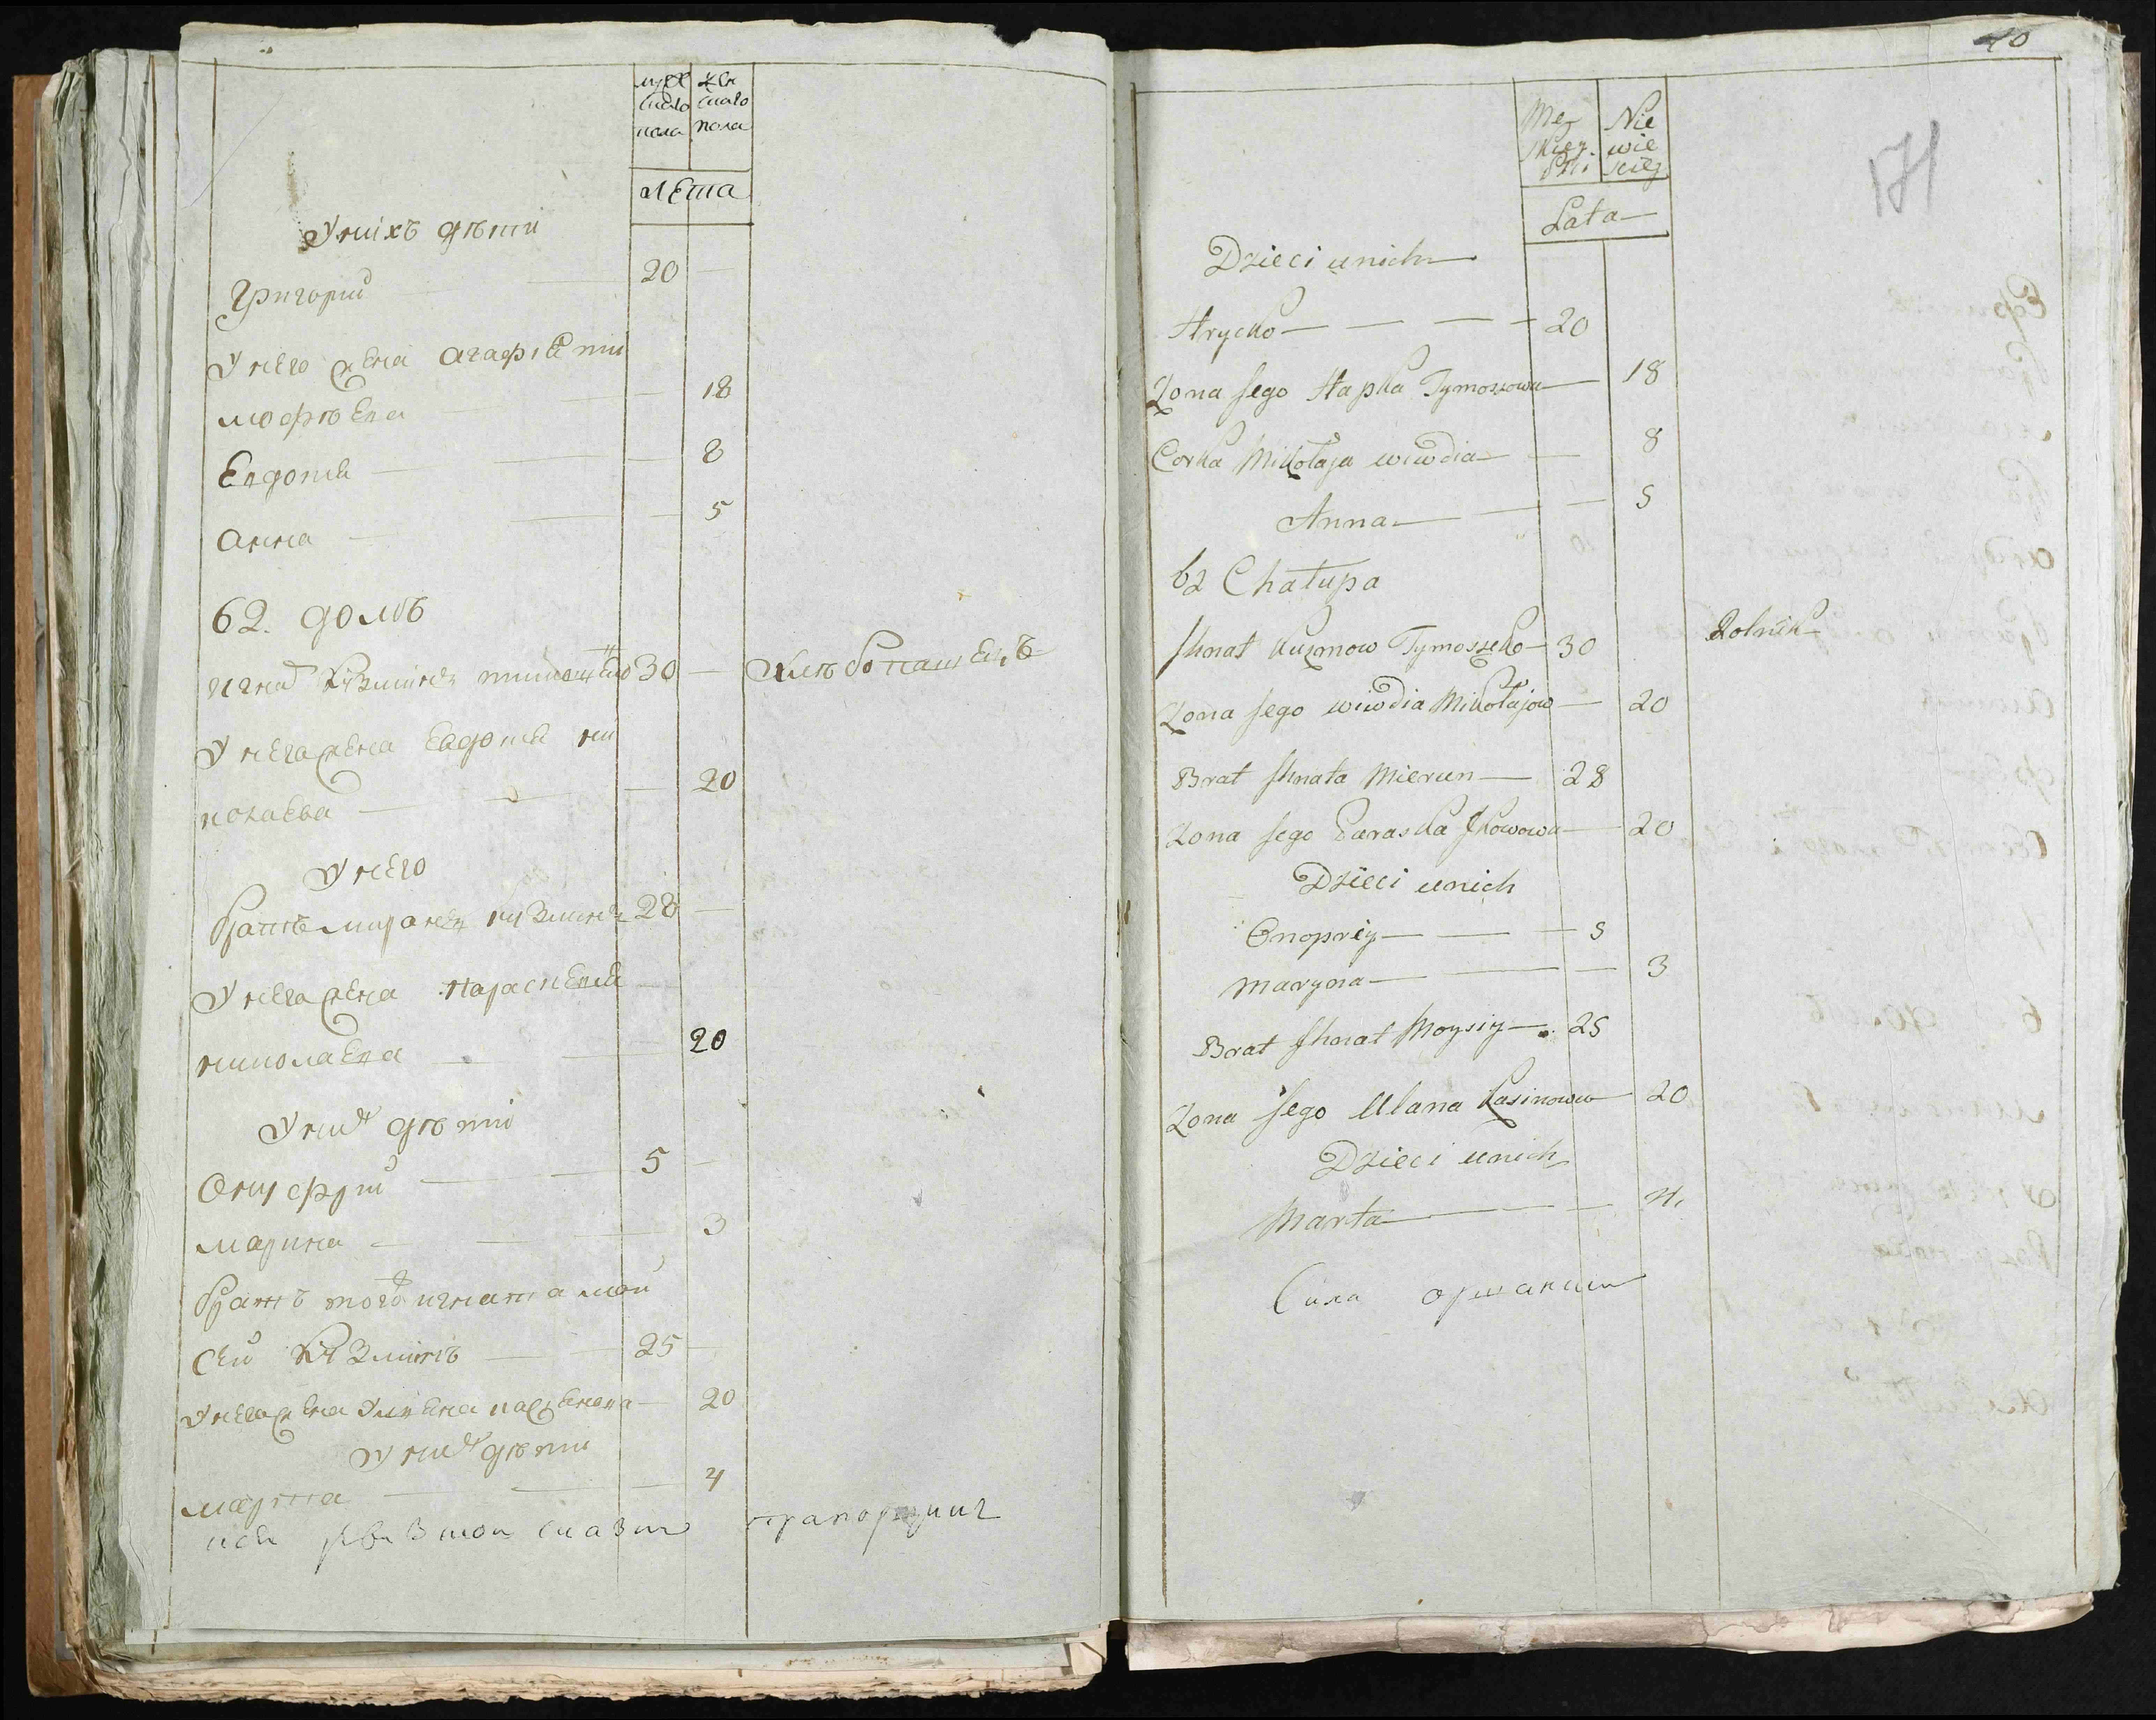 муж
скаго
пола
жен
скаго
пола
лета
У нихъ дѣти
Григорий 20
У него жена Агафія ти
мофѣева 18
Евдотия 8
Анна 5
62. домъ
Игнат Кузминъ тимошенко 30 хлѣбопашецъ
У него жена Евдотия ни
колаева 20
У него
братъ миронъ кузминъ 28
У него жена Параскевия
николаева 20
У них дѣти
Онуфрий 5
марина 3
братъ того игната мои
сей Кузминъ 25
У него жена Улияна касянова 20
У них дѣти
марта 4
к сей ревизкои сказки прапорщик
40
171
Męz
skiey
Płci
Nie
wie
sciey
Lata
Dzieci u nich
Hrycko 20
Zona Jego Hapka Tymoszowa 18
Corka Mikołaja wiwdia 8
Anna 5
62 Chałupa
Ihnat Kuzmow Tymoszeko 30 Rolnik
Zona Jego wiwdia Mikołajow 20
Brat Ihnata Mieron 28
Zona Jego Paraska 20
Dzieci u nich
Onoprey 5
Maryna 3
Brat Ihnat Moysiy 25
Zona Jego Ulana Kasinowa 20
Dzieci u nich
Marta 4